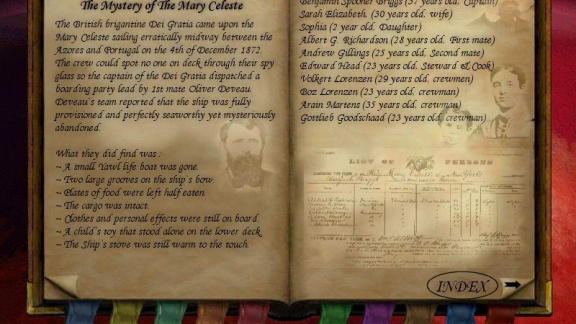 The Mystery of The Mary Celeste
The British brigantine Dei Gratia came upon the
Mary Celeste sailing erratically midway between the
Azores and Portugal on the 4th of December 1872.
The crew could spot no one on deck through their spy
glass so the captain of the Dei Gratia dispatched a
boarding party lead by 1st mate Oliver Deveau.
Deveau's team reported that the ship was fully
provisioned and perfectly seaworthy yet mysteriously
abandoned.
What they did find was :
~ A small Yawl life boat was gone.
~ Two large grooves on the ship's bow.
~ Plates of food were left half eaten.
~ The cargo was intact.
~ Clothes and personal effects were still on board
~ A child's toy that stood alone on the lower deck.
~ The Ship's stove was still warm to the touch.
Benjamin Spooner Briggs (37 years old. Captain)
Sarah Elizabeth. (30 years old. wife)
Sophia (2 year old. Daughter)
Albert G. Richardson (28 years old. First mate)
Andrew Gillings (25 years old. Second mate)
Edward Head (23 years old. Steward & Cook)
Volkert Lorenzen (29 years old. crewmen)
Boz Lorenzen (23 years old. crewman)
Arain Martens (35 years old. crewman)
Gottlieb Goodschaad (23 years old. crewman)
LIST OF PERSONS
INDEX